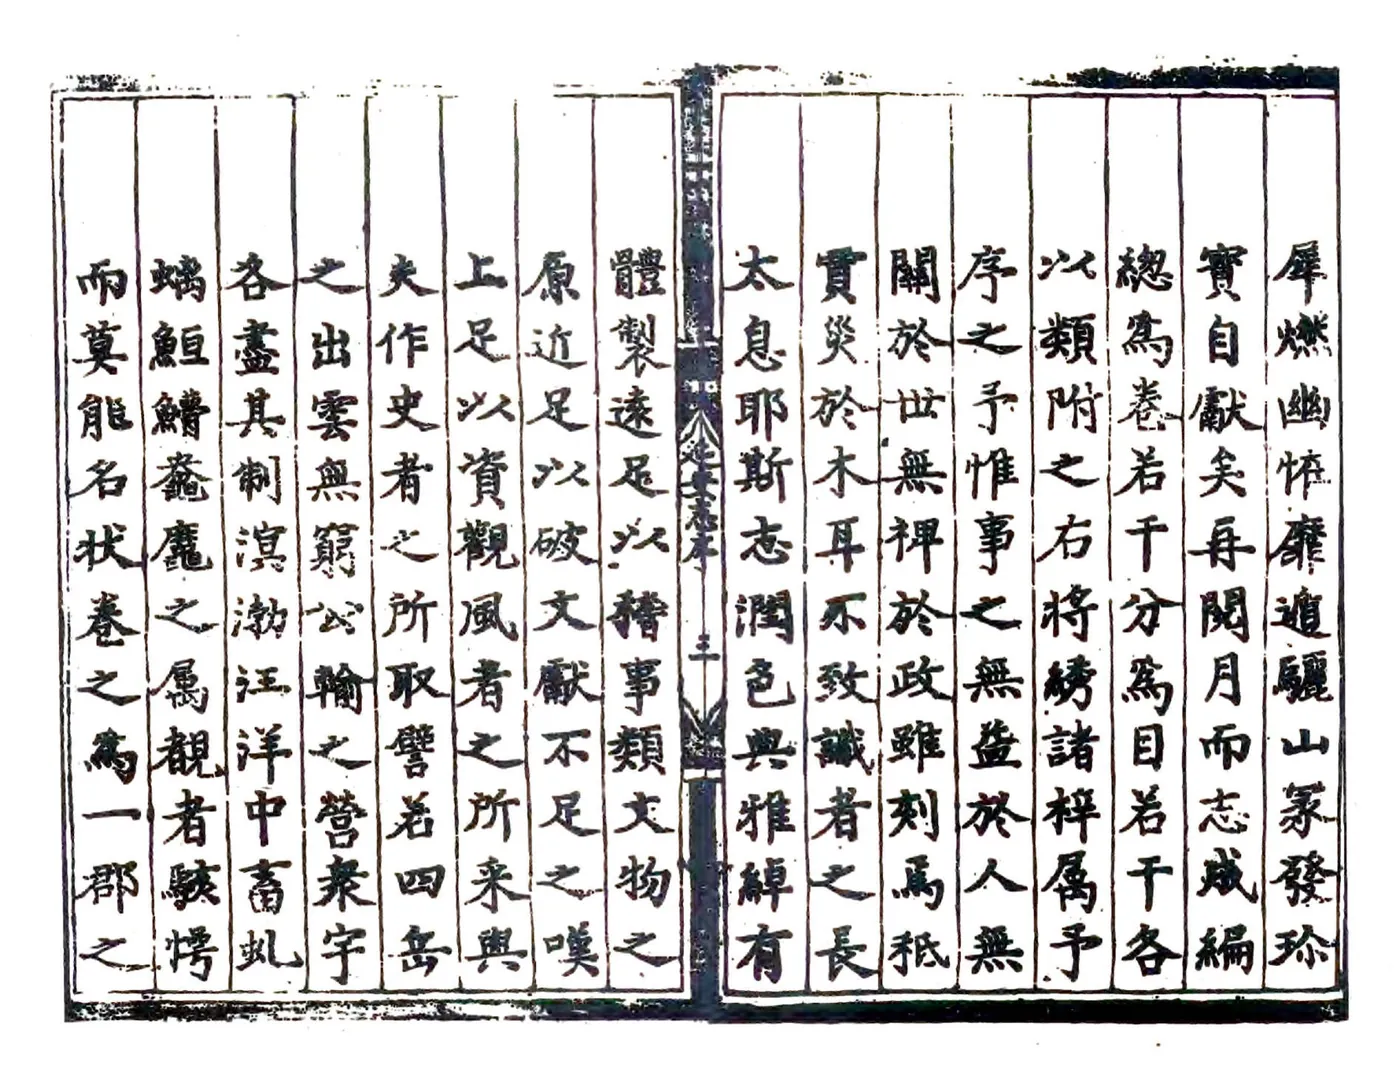 犀燃幽怪靡遁驪山冢發珍
寳自獻矣再閱月而志成編
緫為卷若干分為目若干各
以類附之右将綉諸梓属予
序之予惟事之無益於人無
關於世無裨於政雖刻為秪
貫災於木耳不致識者之長
太息耶斯志潤色典雅綽有
延安志序
三
體製遠足以稽事類文物之
原近足以破文獻不足之嘆
上足以資觀風者之所采與
夫作史者之所取譬若四岳
之出雲無窮公輸之營衆宇
各盡其制溟渤汪洋中畜虬
螭鮔鱛鼇鼉之属覩者駭愕
而莫能名状卷之為一郡之